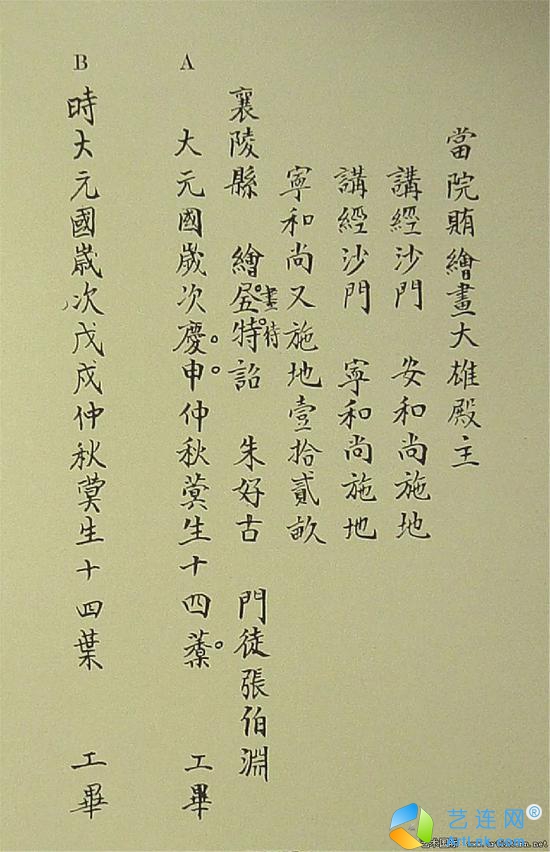 當院賄繪畫大雄殿主
講經沙門 安和尚施地
講經沙門 寧和尚施地
寧和尚又施地壹拾貳畝
襄陵縣 繪㞐特詔 朱好古 門徒張伯淵
畫待
A
大元國歲次慶申仲秋蓂生十四蘃 工畢
B
時大元國歲次戊戌仲秋蓂生十四葉 工畢
艺连网®